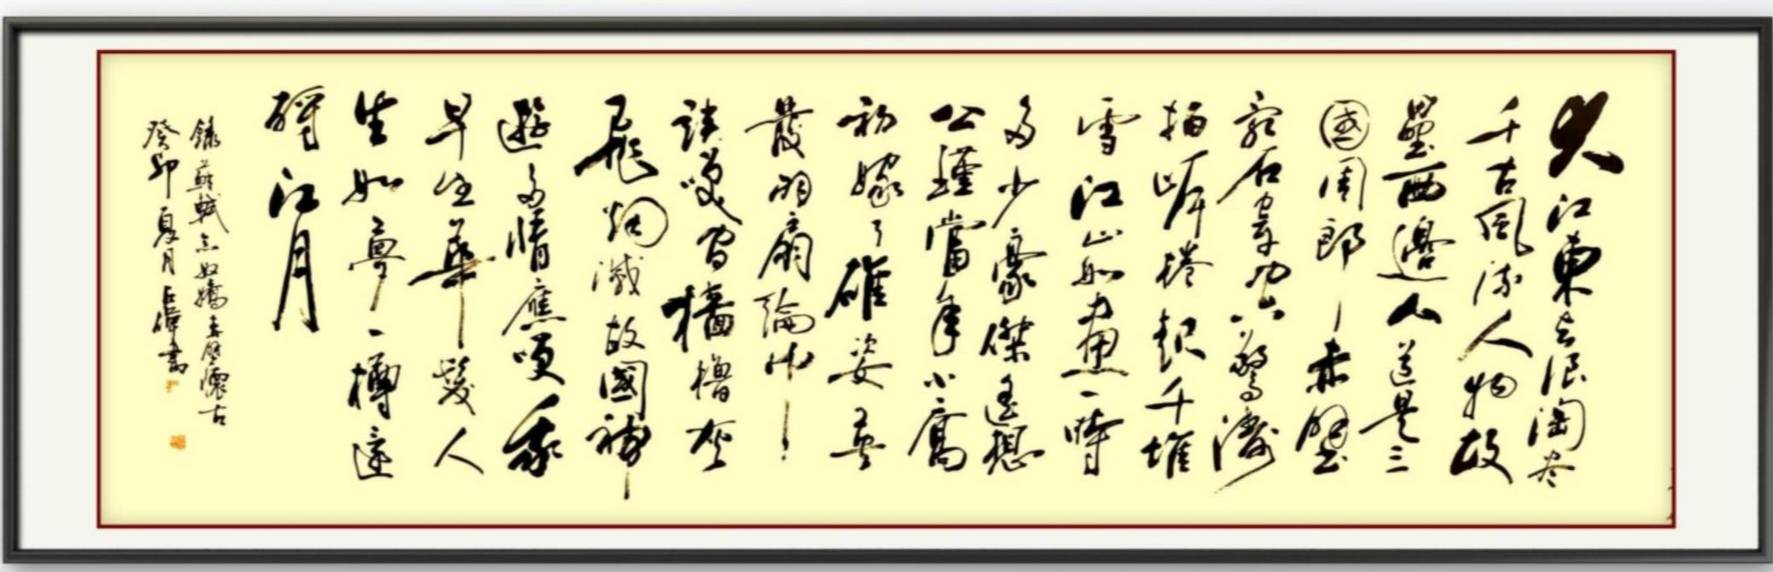 大江東去浪淘尽
千古風流人物故
壘西邊人道是三
國周郎赤壁
乱石穿空驚濤
拍岸捲起千堆
雪江山如畫一時
多少豪傑遥想
公瑾當年小喬
初嫁了雄姿英
發羽扇綸巾
談笑間檣櫓灰
飛烟滅故國神
遊多情應嘆我
早生華髮人
生如夢一樽還
酹江月
錄蘇軾念奴嬌赤壁懷古
癸卯夏月偉書